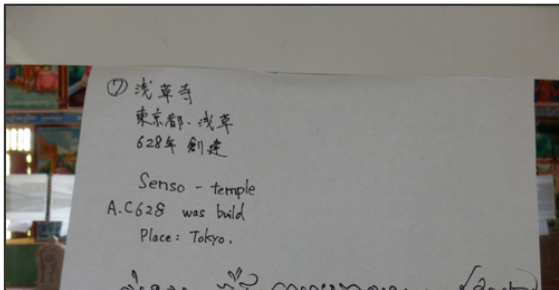 ⑦ 浅草寺
東京都・浅草
628年 創建
Senso - temple
A.C628 was build
Place : Tokyo.